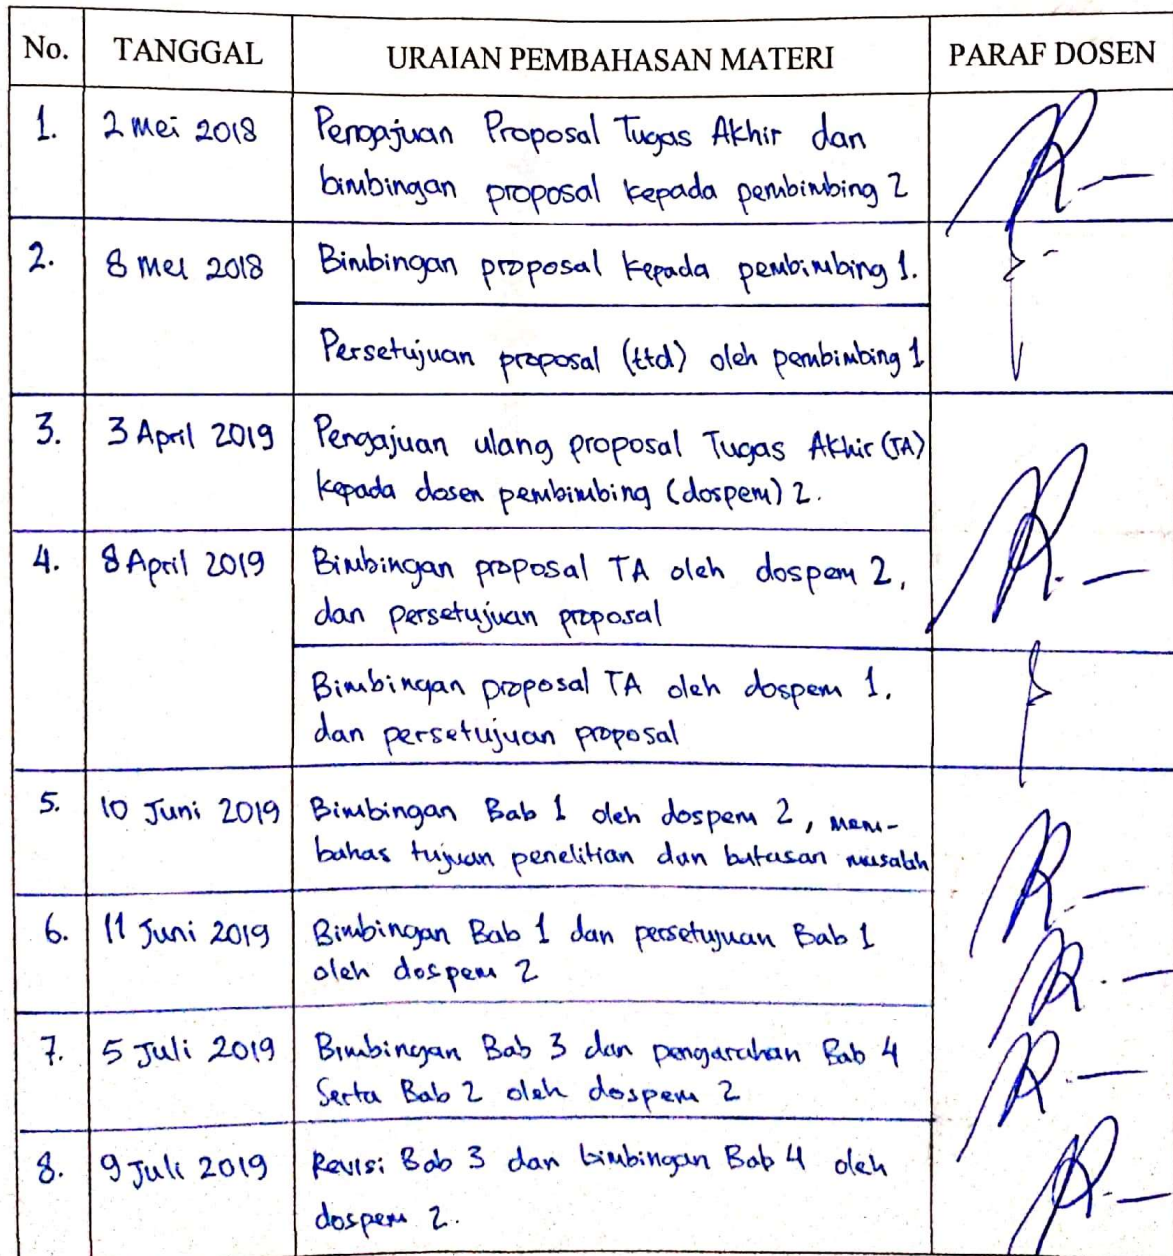 No. TANGGAL URAIAN PEMBAHASAN MATERI PARAF DOSEN
1. 2 Mei 2018 Pengajuan Proposal Tugas Akhir dan
bimbingan proposal kepada pembimbing 2
2. 8 Mei 2018 Bimbingan proposal kepada pembimbing 1.
Persetujuan proposal (ttd) oleh pembimbing 1
3. 3 April 2019 Pengajuan ulang proposal Tugas Akhir (TA)
kepada dosen pembimbing (dospem) 2.
4. 8 April 2019 Bimbingan proposal TA oleh dospem 2,
dan persetujuan proposal
Bimbingan proposal TA oleh dospem 1,
dan persetujuan proposal
5. 10 Juni 2019 Bimbingan Bab 1 oleh dospem 2, mem-
bahas tujuan penelitian dan batasan masalah
6. 11 Juni 2019 Bimbingan Bab 1 dan persetujuan Bab 1
oleh dospem 2
7. 5 Juli 2019 Bimbingan Bab 3 dan pengarahan Bab 4
Serta Bab 2 oleh dospem 2
8. 9 Juli 2019 Revisi Bab 3 dan bimbingan Bab 4 oleh
dospem 2.